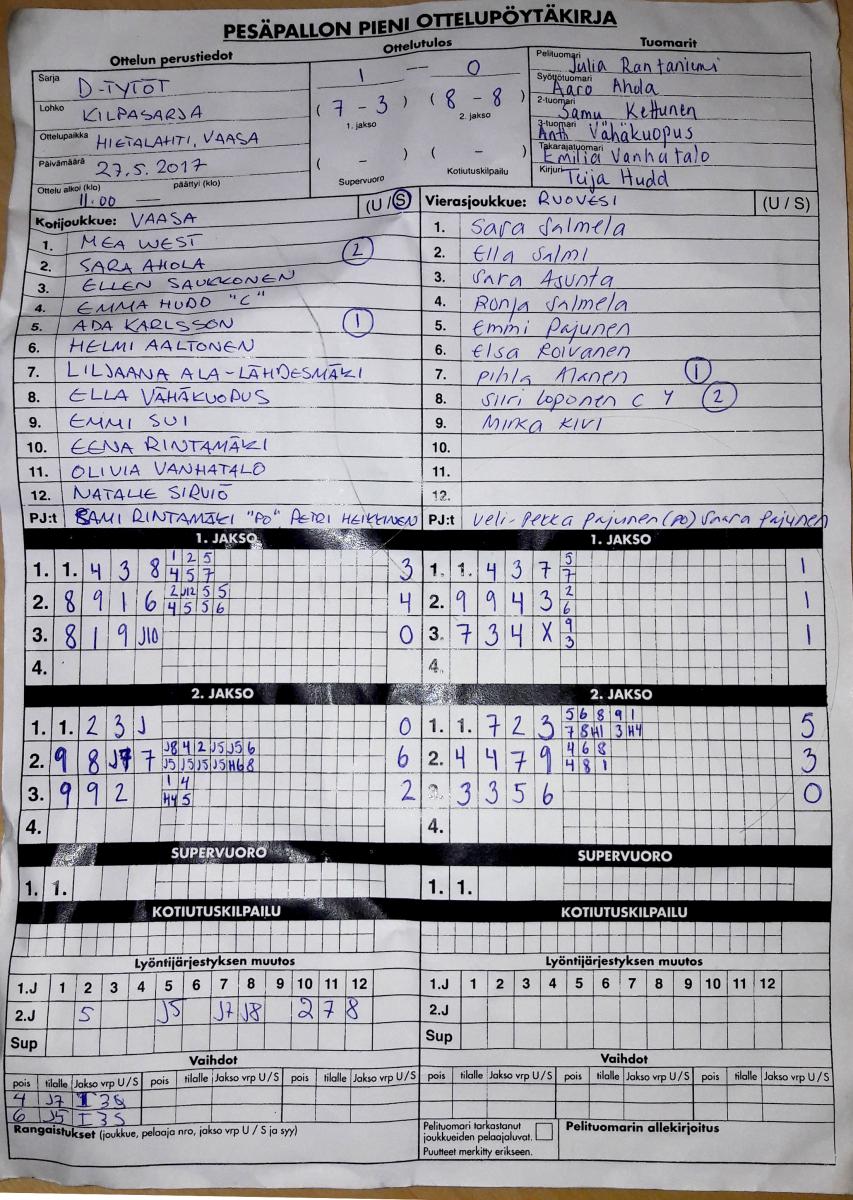 PESÄPALLON PIENI OTTELUPÖYTÄKIRJA
Ottelun perustiedot
Ottelutulos
Tuomarit
Sarja D-TYTÖT
Lohko KILPASARJA
Ottelupaikka HIETALAHTI, VAASA
Päivämäärä 27.5.2017
Ottelu alkoi (klo) päättyi (klo)
11.00 —
1 — 0
( 7 - 3 ) ( 8 - 8 )
1. jakso 2. jakso
( - ) ( - )
Supervuoro Kotiutuskilpailu
Pelituomari Julia Rantaniemi
Syöttötuomari Aaro Ahola
2-tuomari Samu Kettunen
3-tuomari Antti Vähäkuopus
Takarajatuomari Emilia Vanhatalo
Kirjuri Teija Hudd
Kotijoukkue: VAASA (U / S)
1. MEA WEST
2. SARA AHOLA 2
3. ELLEN SAUKKONEN
4. EMMA HUDD "C"
5. ADA KARLSSON 1
6. HELMI AALTONEN
7. LILJAANA ALA-LÄHDESMÄKI
8. ELLA VÄHÄKUOPUS
9. EMMI SUI
10. EENA RINTAMÄKI
11. OLIVIA VANHATALO
12. NATALIE SIRVIÖ
PJ:t SAMI RINTAMÄKI "PO" PETRI HEIKKINEN
Vierasjoukkue: RUOVESI (U / S)
1. Sara Salmela
2. Ella Salmi
3. Sara Asunta
4. Ronja Salmela
5. Emmi Pajunen
6. Elsa Koivanen
7. Pihla Alanen 1
8. Siiri Loponen C Y 2
9. Mirka Kivi
10.
11.
12.
PJ:t Veli-Pekka Pajunen (PO) Saara Pajunen
1. JAKSO
1 2 5
1. 1. 4 3 8 4 5 7 3
2 J12 5 5
2. 8 9 1 6 4 5 5 6 4
3. 8 1 9 J10 0
4.
1. JAKSO
5
1. 1. 4 3 7 7 1
2
2. 9 9 4 3 6 1
9
3. 7 3 4 X 3 1
4.
2. JAKSO
1. 1. 2 3 J 0
J8 4 2 J5 J5 6
2. 9 8 J7 7 J5 J5 J5 J5 H6 8 6
1 4
3. 9 9 2 H4 5 2
4.
2. JAKSO
5 6 8 9 1
1. 1. 7 2 3 7 8 H1 3 H4 5
4 6 8
2. 4 4 7 9 4 8 1 3
3. 3 3 5 6 0
4.
SUPERVUORO
1. 1.
SUPERVUORO
1. 1.
KOTIUTUSKILPAILU
KOTIUTUSKILPAILU
Lyöntijärjestyksen muutos
1.J 1 2 3 4 5 6 7 8 9 10 11 12
2.J 5 J5 J7 J8 2 7 8
Sup
Lyöntijärjestyksen muutos
1.J 1 2 3 4 5 6 7 8 9 10 11 12
2.J
Sup
Vaihdot
pois tilalle Jakso vrp U / S pois tilalle Jakso vrp U / S pois tilalle Jakso vrp U / S
4 J7 I 3 S
6 J5 I 3 S
Vaihdot
pois tilalle Jakso vrp U / S pois tilalle Jakso vrp U / S pois tilalle Jakso vrp U / S
Rangaistukset (joukkue, pelaaja nro, jakso vrp U / S ja syy)
Pelituomari tarkastanut
joukkueiden pelaajaluvat.
Puutteet merkitty erikseen.
Pelituomarin allekirjoitus